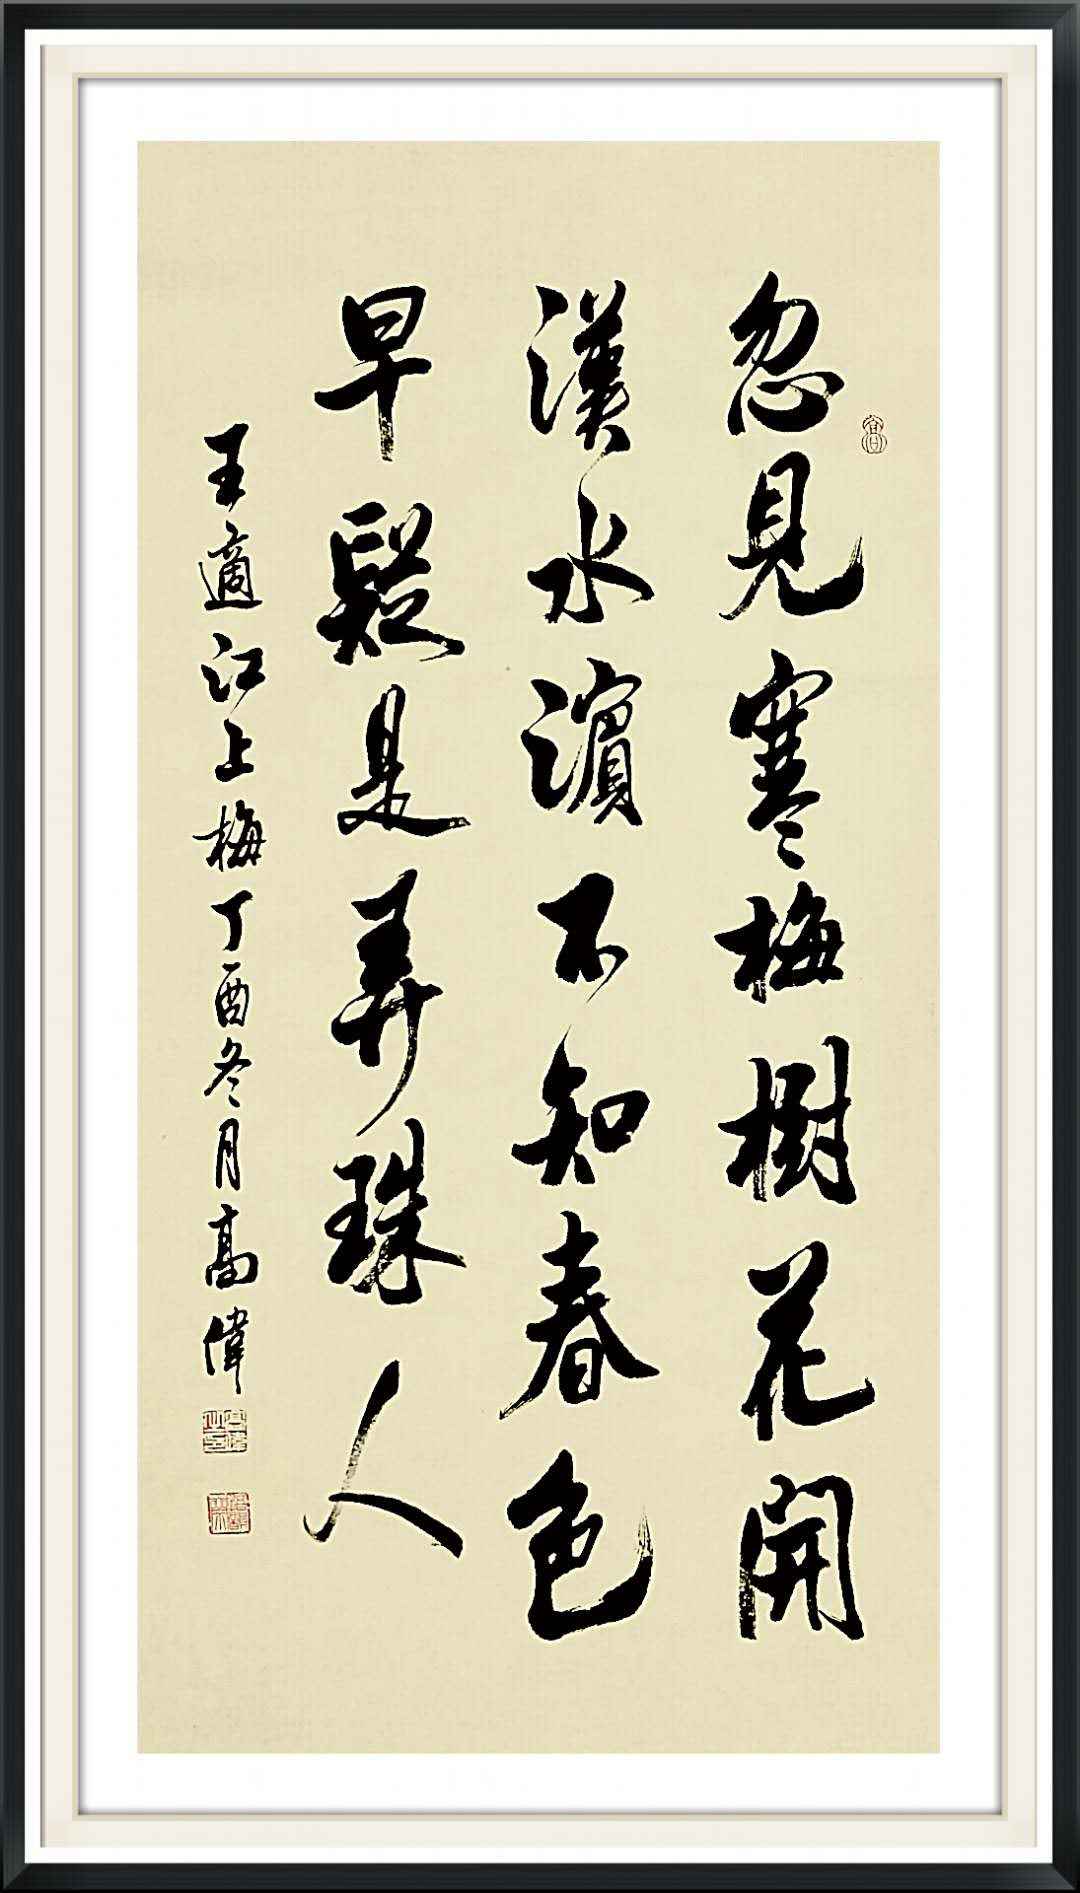 忽見寒梅樹花開
漢水濱不知春色
早疑是弄珠人
王適江上梅丁酉冬月高偉
高